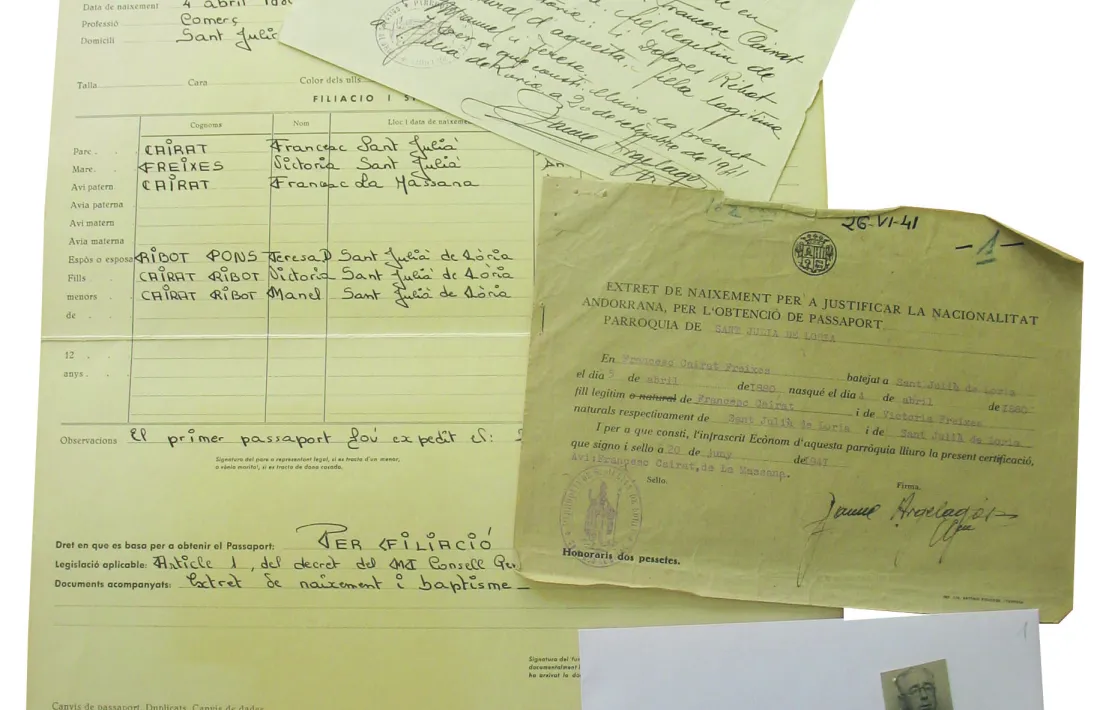 Data de naixement 4 abril
Professió Comerç
Domicili Sant Julià
Talla Cara Color dels ulls
FILIACIO I S
Cognoms Nom Lloc i data de naixeme
Pare. CAIRAT Francesc Sant Julià
Mare. FREIXES Victoria Sant Julià
Avi patern CAIRAT Francesc La Massana
Avia paterna
Avi matern
Avia materna
Espòs o esposa RIBOT PONS Teresa D Sant Julià de Lòria
Fills CAIRAT RIBOT Victoria Sant Julià de Lòria
menors CAIRAT RIBOT Manel Sant Julià de Lòria
de
12
anys.
Observacions El primer passaport fou expedit el:
Signatura del pare o representant legal, si es tracta d'un menor,
o vènia marital, si es tracta de dona casada.
Dret en que es basa per a obtenir el Passaport: PER FILIACIÓ
Legislació aplicable: Article 1, del decret del M.I. Consell Ge
Documents acompanyats: Extret de naixement i baptisme
Signatura del fun
documentalment i
ha areixat la do
Canvis de passaport, Duplicats, Canvis de dades
Francesc Cairat
fill legítim de
i Dolores Ribot
natural d'aquesta, filla legítima
Manuel i Teresa.
I per a que consti lliuro la present
Julià de Loria a 20 de setembre de 1941
Jaume Argelagós
26-VI-41
-1-
EXTRET DE NAIXEMENT PER A JUSTIFICAR LA NACIONALITAT
ANDORRANA, PER L'OBTENCIÓ DE PASSAPORT
PARROQUIA DE SANT JULIA DE LORIA
En Francesc Cairat Freixes batejat a Sant Julià de Loria
el dia 5 de abril de 1880 nasqué el dia 4 de abril de 1880
fill legítim o natural de Francesc Cairat i de Victoria Freixes
naturals respectivament de Sant Julià de Loria i de Sant Julià de Loria
I per a que consti, l'infrascrit Ecònom d'aquesta parròquia lliuro la present certificació,
que signo i sello a 20 de juny de 1941
Avi: Francesc Cairat, de La Massana.
Sello. Firma.
Jaume Argelagós
Honoraris dos pessetes.
1